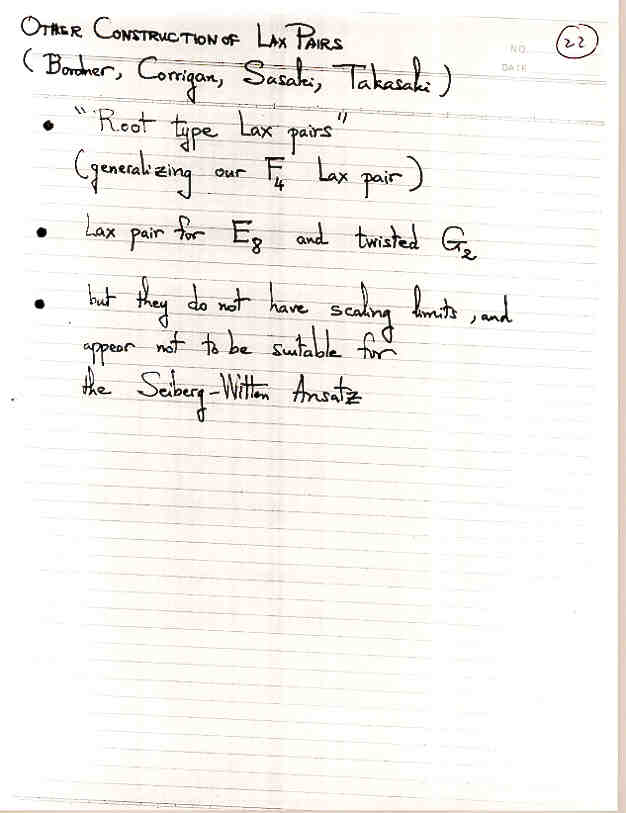 OTHER CONSTRUCTION OF LAX PAIRS
22
NO.
(Bordner, Corrigan, Sasaki, Takasaki)
DATE
• "Root type Lax pairs"
(generalizing our F₄ Lax pair)
• Lax pair for E₈ and twisted G₂
• but they do not have scaling limits, and
appear not to be suitable for
the Seiberg-Witten Ansatz